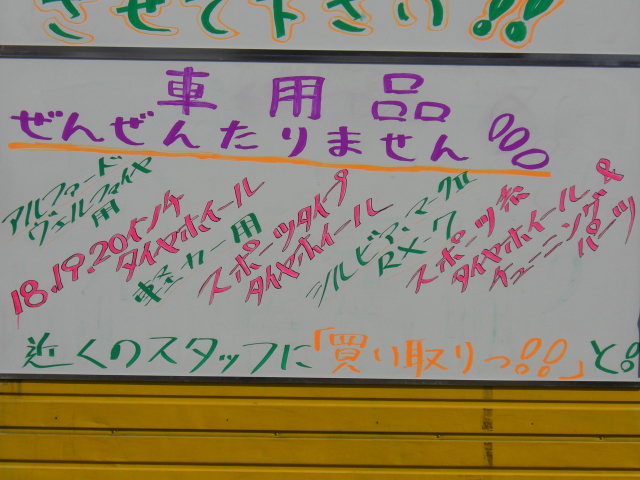 させて下さい!!
車用品
ぜんぜんたりません
アルファード
ヴェルファイヤ
用
18.19.20インチ
タイヤホイール
軽カー用
スポーツタイプ
タイヤホイール
シルビア、マークII
RX-7
スポーツ系
タイヤホイール&
チューニング
パーツ
近くのスタッフに「買い取りっ!!」と